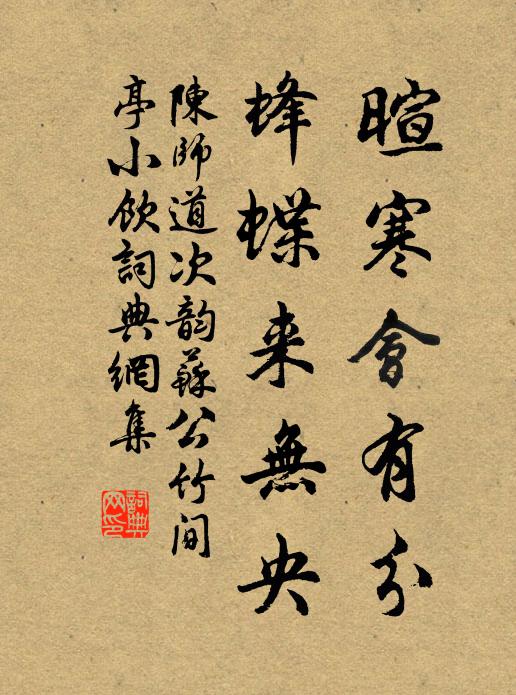 暄寒會有分
蜂蝶来無央
陳師道次韵蘇公竹间
亭小飲詞典網集
詞典网印